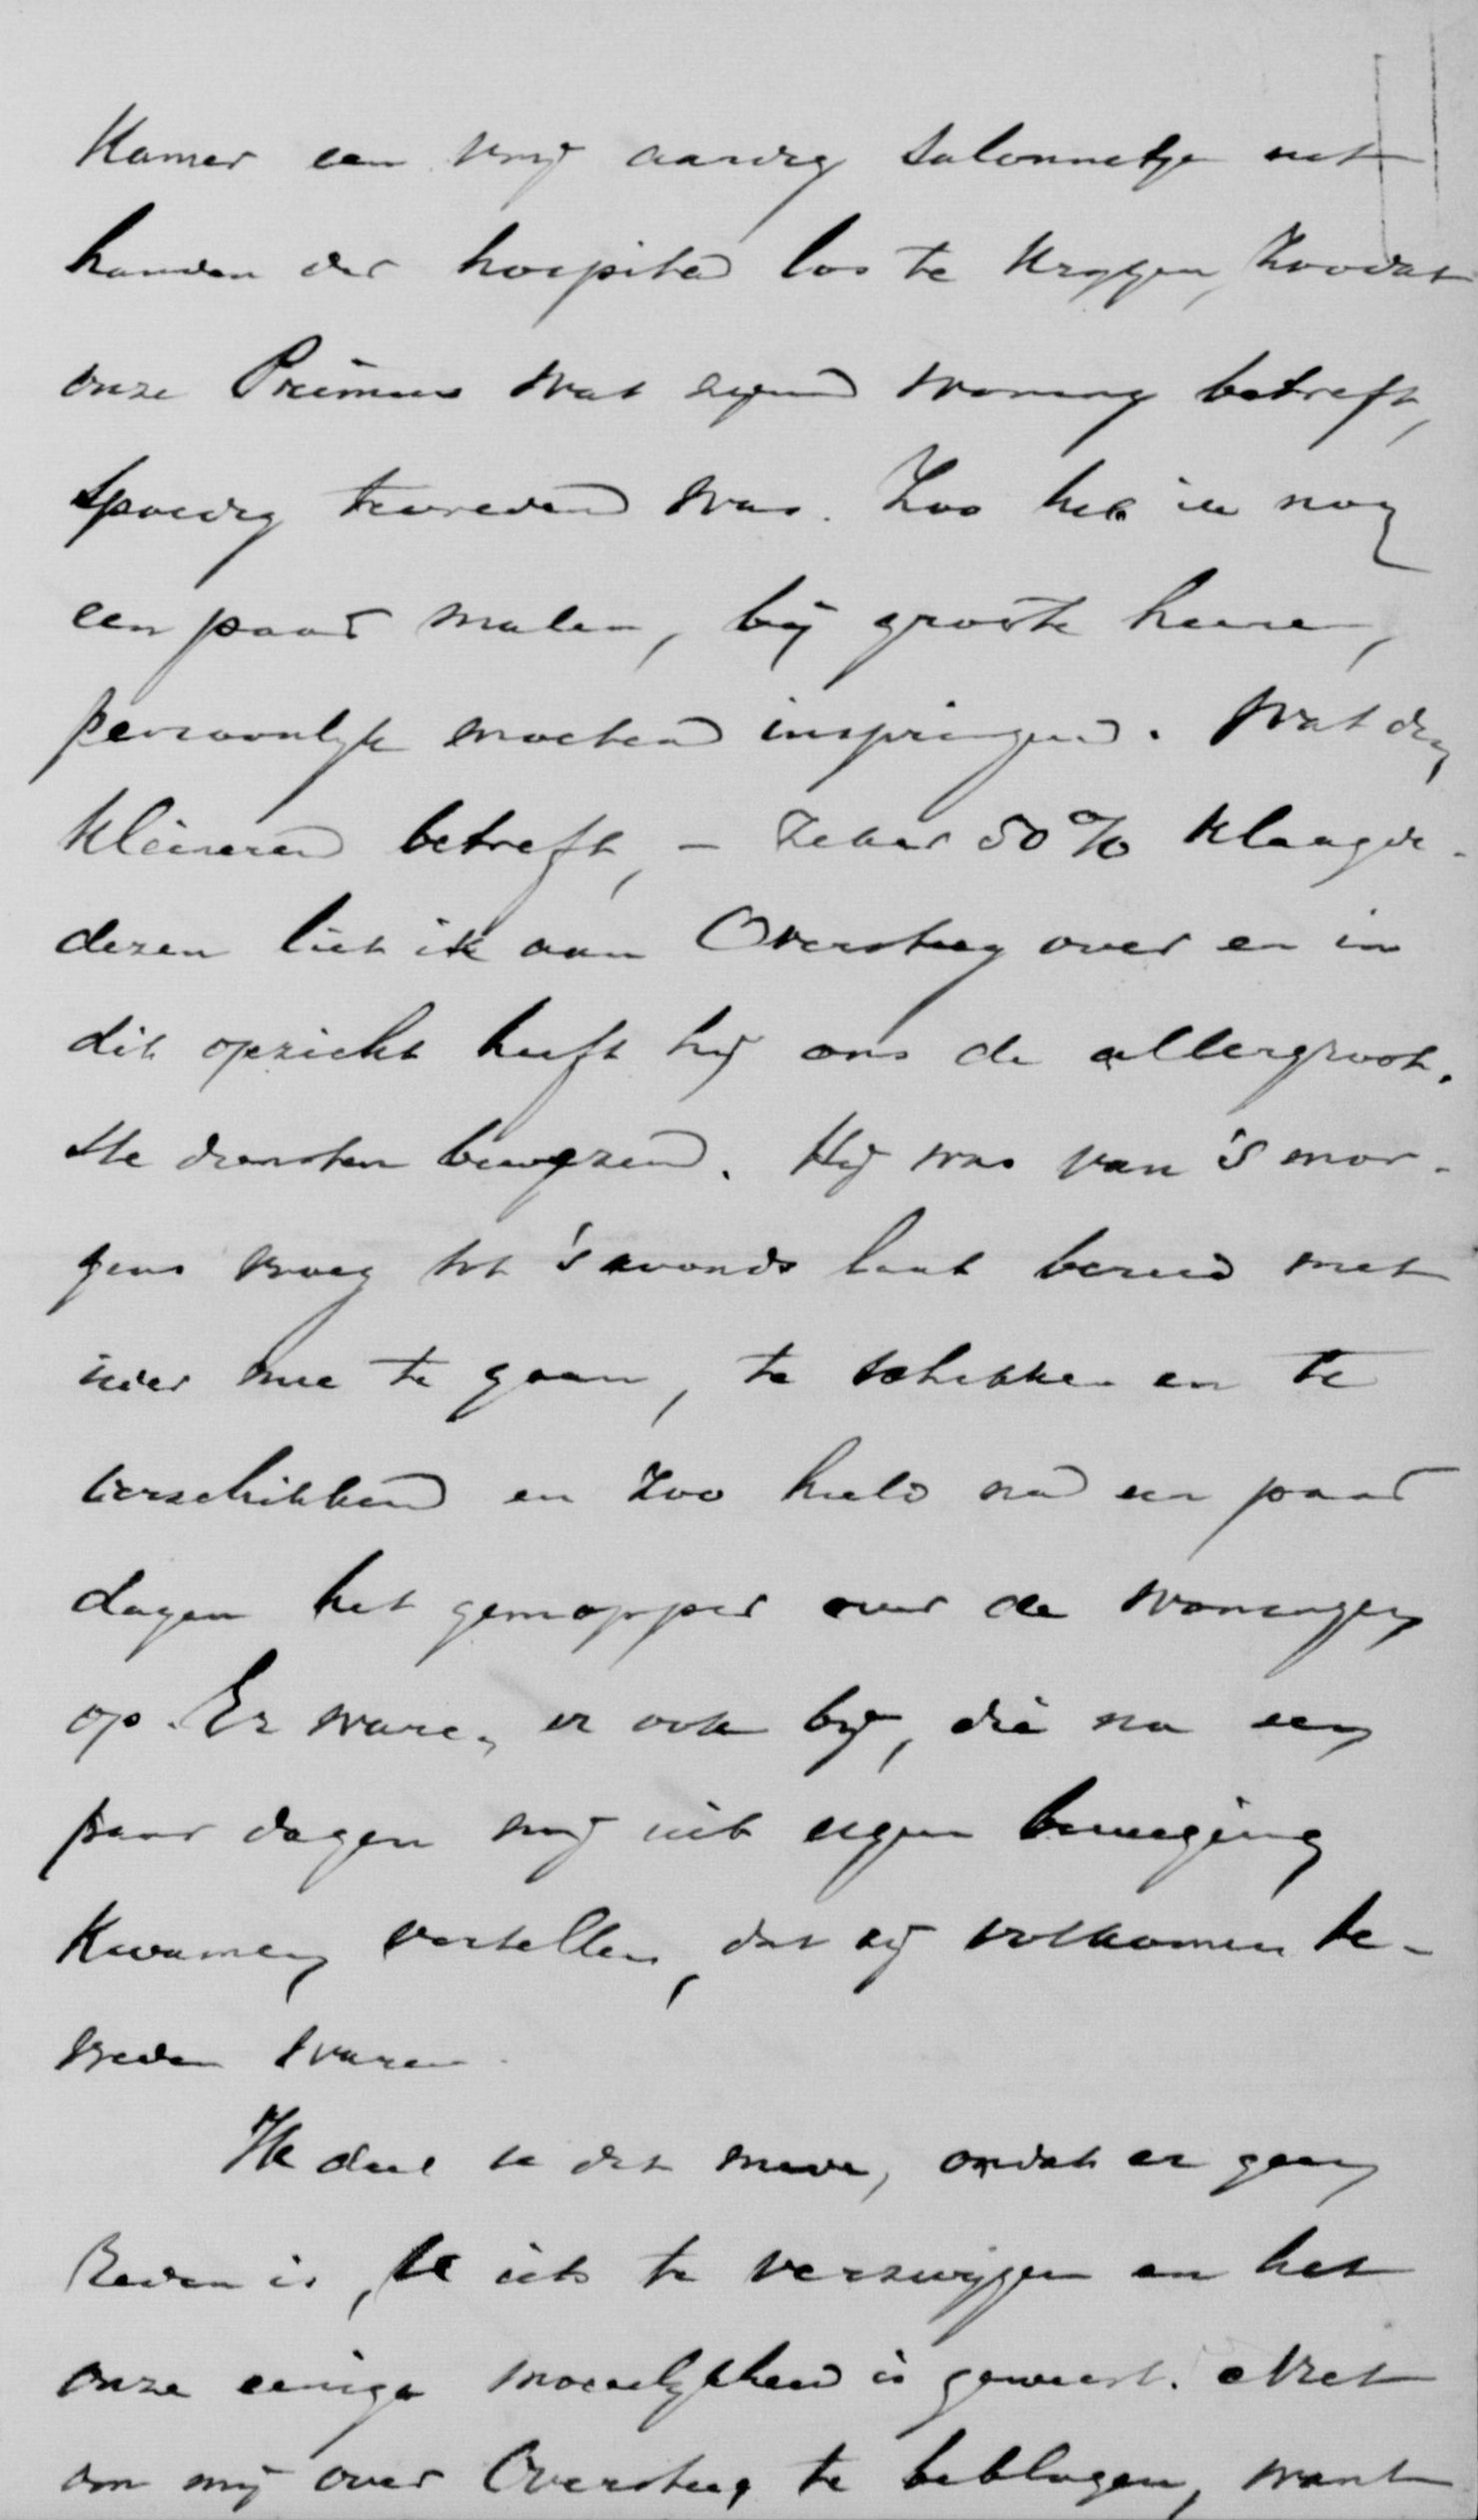 Kamer een vrij aardig salonnetje uit
handen der hospita los te krygen, zoodat
onze Primus wat zyne woning betreft,
spoedig tevreden was. Zoo heb ik nog
een paar malen, bij groote heeren,
persoonlyk moeten inspringen. Wat de
kleineren betreft, – zeker 50% klaagde –
dezen liet ik aan Oversteeg over en in
dit opzicht heeft hij ons de allergroot-
ste diensten bewezen. Hij was van 's mor-
gens vroeg tot 's avonds laat bereid met
ieder mee te gaan, te schikken en te
verschikken en zoo hield na een paar
dagen het gemopper over de woningen
op. Er waren er ook bij, die na een
paar dagen mij uit eigen beweging
kwamen vertellen, dat zij volkomen te-
vreden waren.
Ik deel te dit mede, omdat er geen
reden is, te iets te verzwijgen en het
onze eenige moeielykheid is geweest. Niet
om mij over Oversteeg te beklagen, want